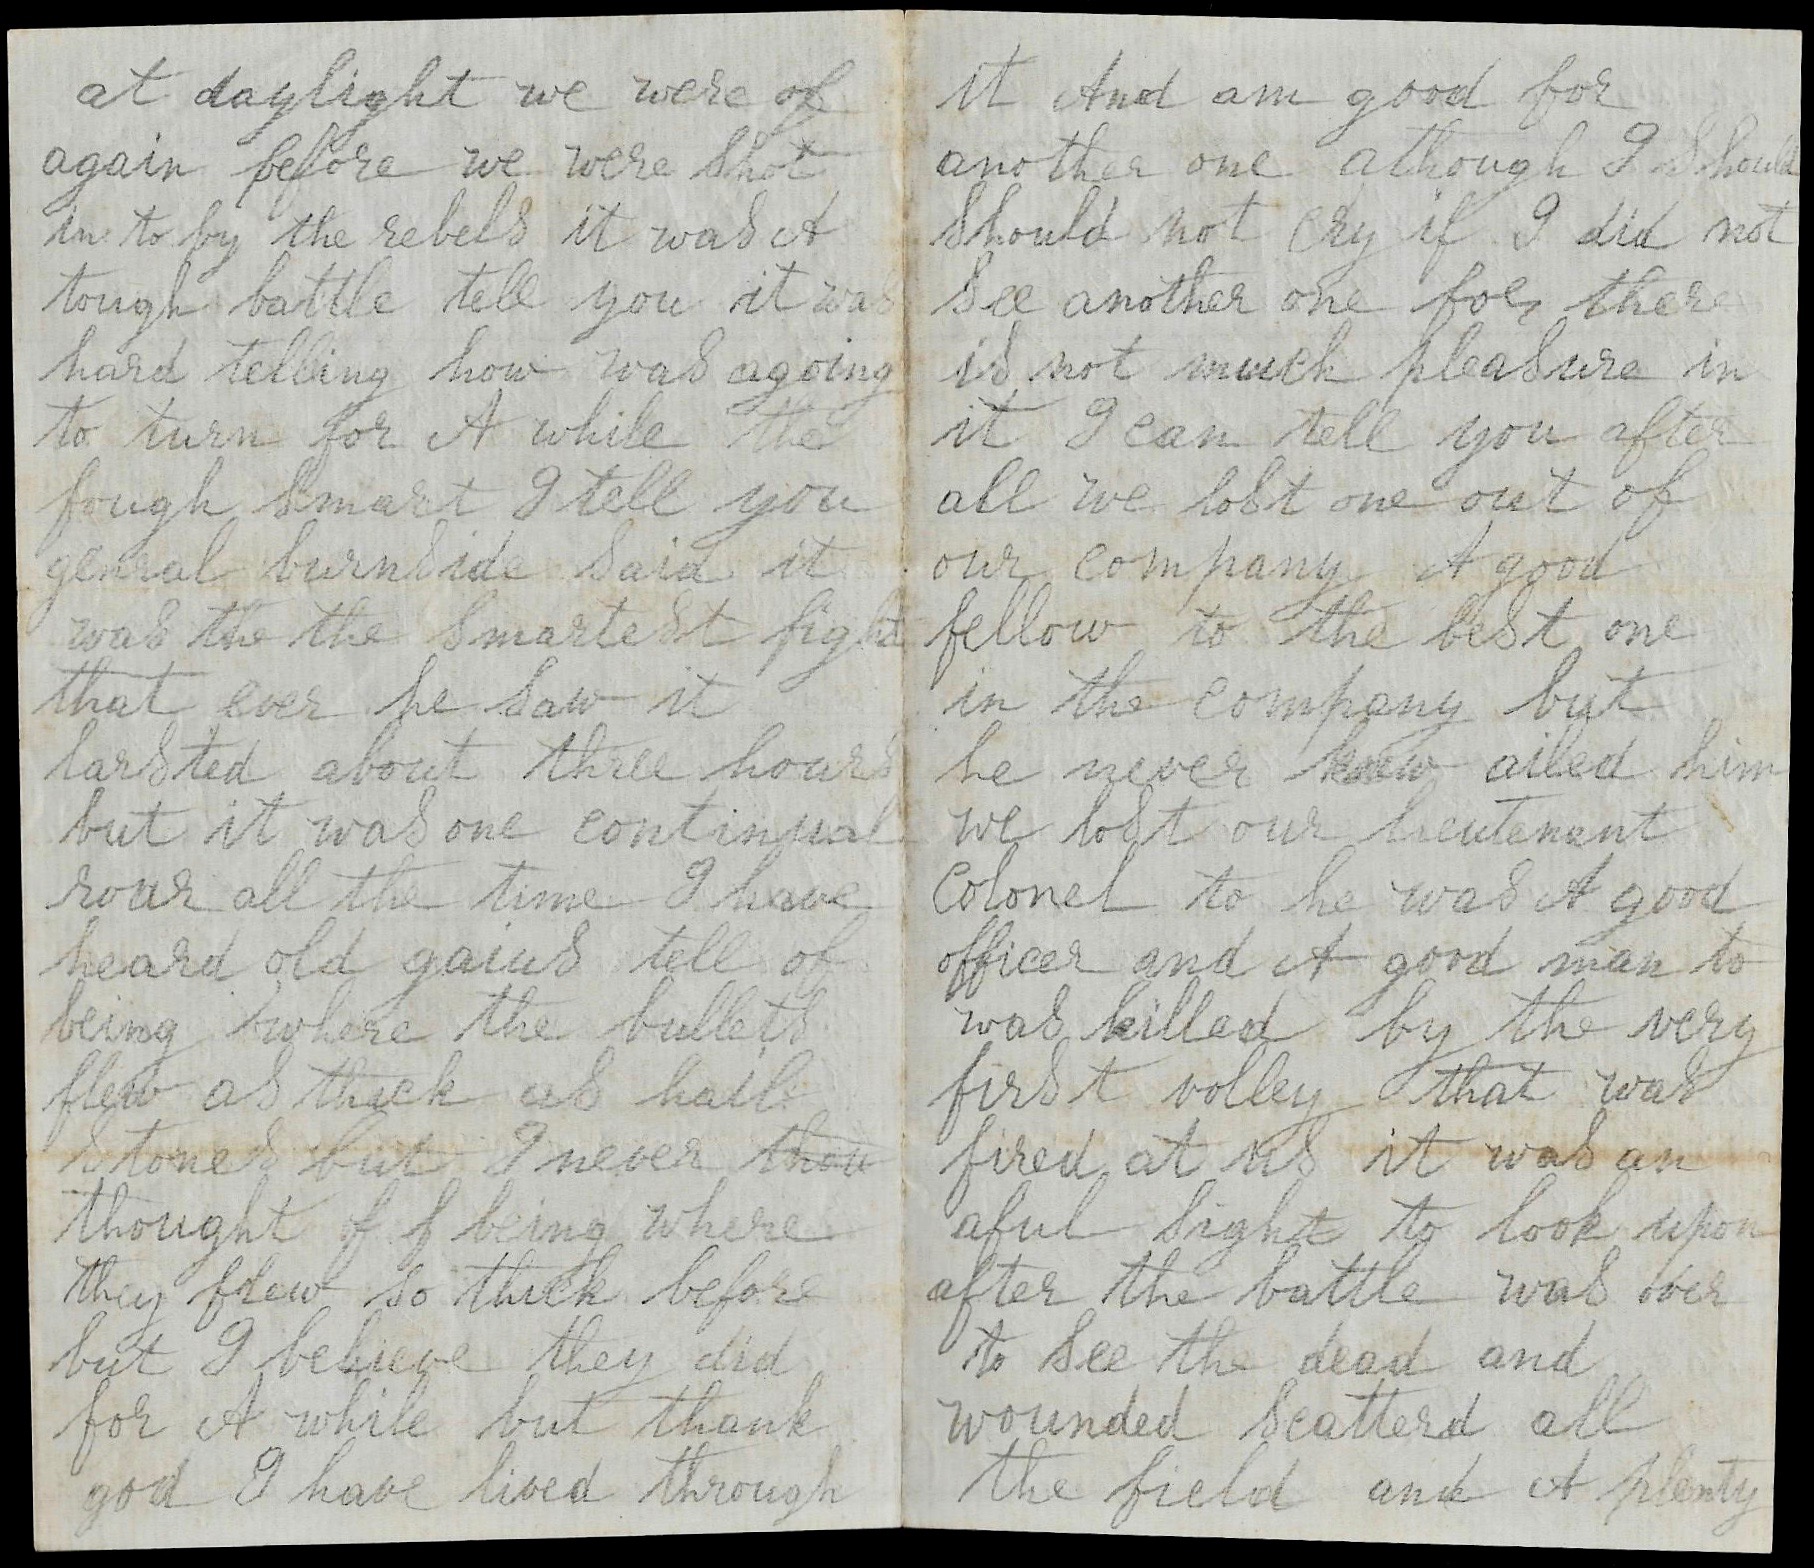 at daylight we were of
again before we were shot
in to by the rebels it was A
tough battle tell you it was
hard telling how was agoing
to turn for A while the
fough smart I tell you
genral burnside said it
was the the smartest fight
that ever he saw it
larsted about three hours
but it was one continual
roar all the time I have
heard old gaius tell of
being where the bullets
flew as thick as hail
stones but I never thou
thought of f being where
they flew so thick before
but I believe they did
for A while but thank
god I have lived through
it And am good for
another one athough I should
should not cry if I did not
see another one for there
is not much pleasure in
it I can tell you after
all we lost one out of
our company A good
fellow to the best one
in the company but
he never knew ailed him
we lost our lieutenant
colonel to he was A good
officer and A good man to
was killed by the very
first volley that was
fired at us it was an
aful sight to look upon
after the battle was over
to see the dead and
wounded scatterd all
the field and A plenty